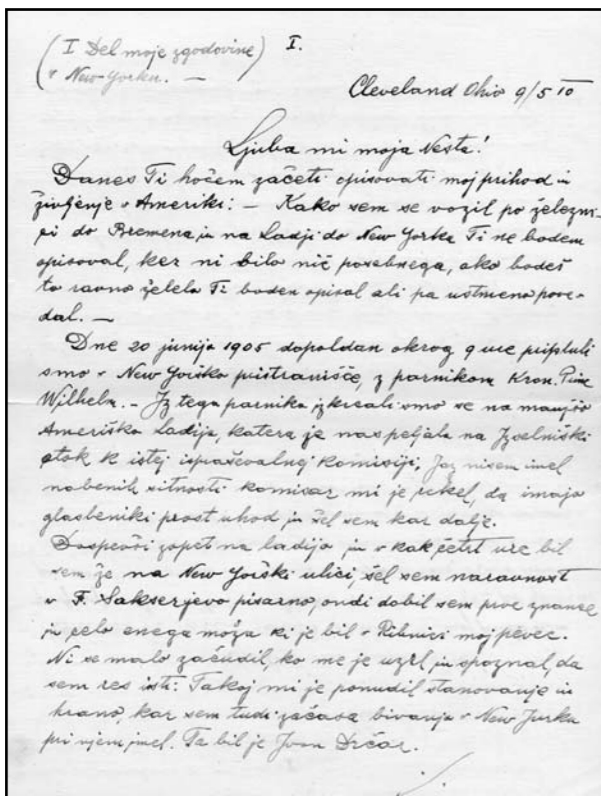 (I Del moje zgodovine) I.
v New-Yorku. —
Cleveland Ohio 9/5 10
Ljuba mi moja Nesta!
Danes Ti hočem začeti opisovati moj prihod in
življenje v Ameriki: — Kako sem se vozil po železni-
ci do Bremena, in na Ladji do New Yorka Ti ne bodem
opisoval, ker ni bilo nič posebnega, ako bodeš
to ravno želela Ti bodem opisal ali pa ustmeno pove-
dal. —
Dne 20 junija 1905 dopoldan okrog 9 ure pripluli
smo v New Yorško pristanišče, z parnikom Kron. Prinz
Wilhelm. — Iz tega parnika izkrcali smo se na manjšo
Ameriško Ladijo, katera je nas peljala na Izselniški
otok k istej izpraševalnej komisiji, Jaz nisem imel
nobenih sitnosti komisar mi je rekel, da imajo
glasbeniki prost uhod in šel sem kar dalje.
Dospevši zopet na ladijo in v kak četrt ure bil
sem že na New Yorški ulici, šel sem naravnost
v F. Sakserjevo pisarno, ondi dobil sem prve znance
in celo enega moža ki je bil v Ribnici moj pevec.
Ni se malo začudil, ko me je uzrl, in spoznal, da
sem res isti: Takoj mi je ponudil stanovanje in
hrano, kar sem tudi začasa bivanja v New Jorku
pri njem imel. Ta bil je Ivan Drčar.